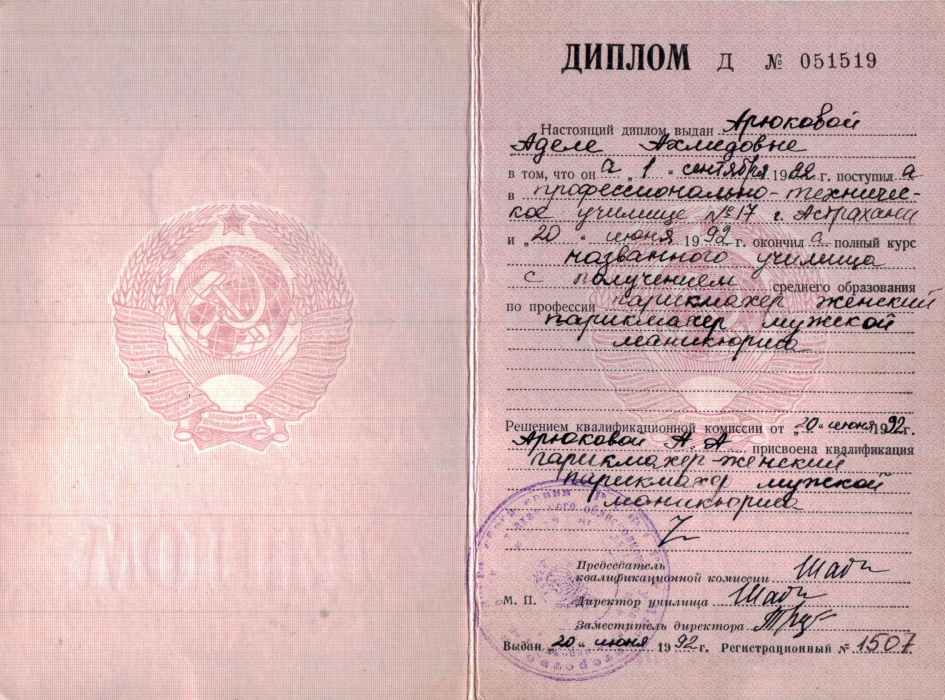 ДИПЛОМ Д № 051519
Настоящий диплом выдан Арюковой
Аделе Ахмидовне
в том, что он а „ 1 “ сентября 19 г. поступил а
в профессионально-техничес-
кое училище №17 г. Астрахани
и „ 20 “ июня 1992 г. окончил а полный курс
названного училища
с получением среднего образования
по профессии парикмахер женский
парикмахер мужской
маникюриса
Решением квалификационной комиссии от „20“ июня 1992г.
Арюковой А. А присвоена квалификация
парикмахер-женский
парикмахер мужской
маникюриса
Председатель
квалификационной комиссии
М. П. Директор училища
Заместитель директора
Выдан „20“ июня 1992 г. Регистрационный № 1507